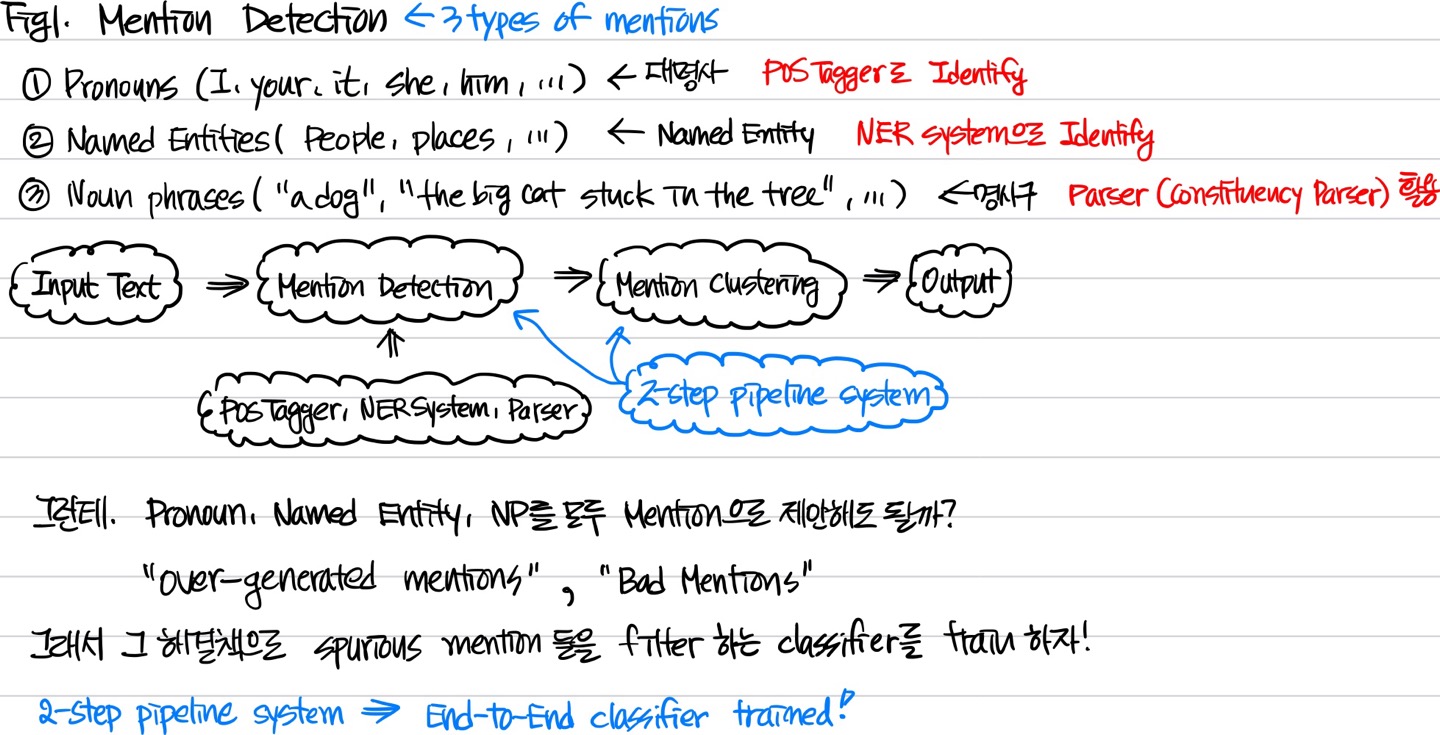 Fig1. Mention Detection ← 3 types of mentions
① Pronouns (I, your, it, she, him, ...) ← 대명사 POS Tagger로 Identify
② Named Entities( People, places, ...) ← Named Entity NER system으로 Identify
③ Noun phrases( "a dog", "the big cat stuck in the tree", ...) ← 명사구 Parser (Constituency Parser) 활용
Input Text ⇒ Mention Detection ⇒ Mention Clustering ⇒ Output
⇑
POS Tagger, NER System, Parser
2-step pipeline system
그런데, Pronoun, Named Entity, NP를 모두 Mention으로 제안해도 될까?
"over-generated mentions", "Bad Mentions"
그래서 그 해결책으로 spurious mention 들을 filter 하는 classifier를 train 하자!
2-step pipeline system ⇒ End-to-End classifier trained!